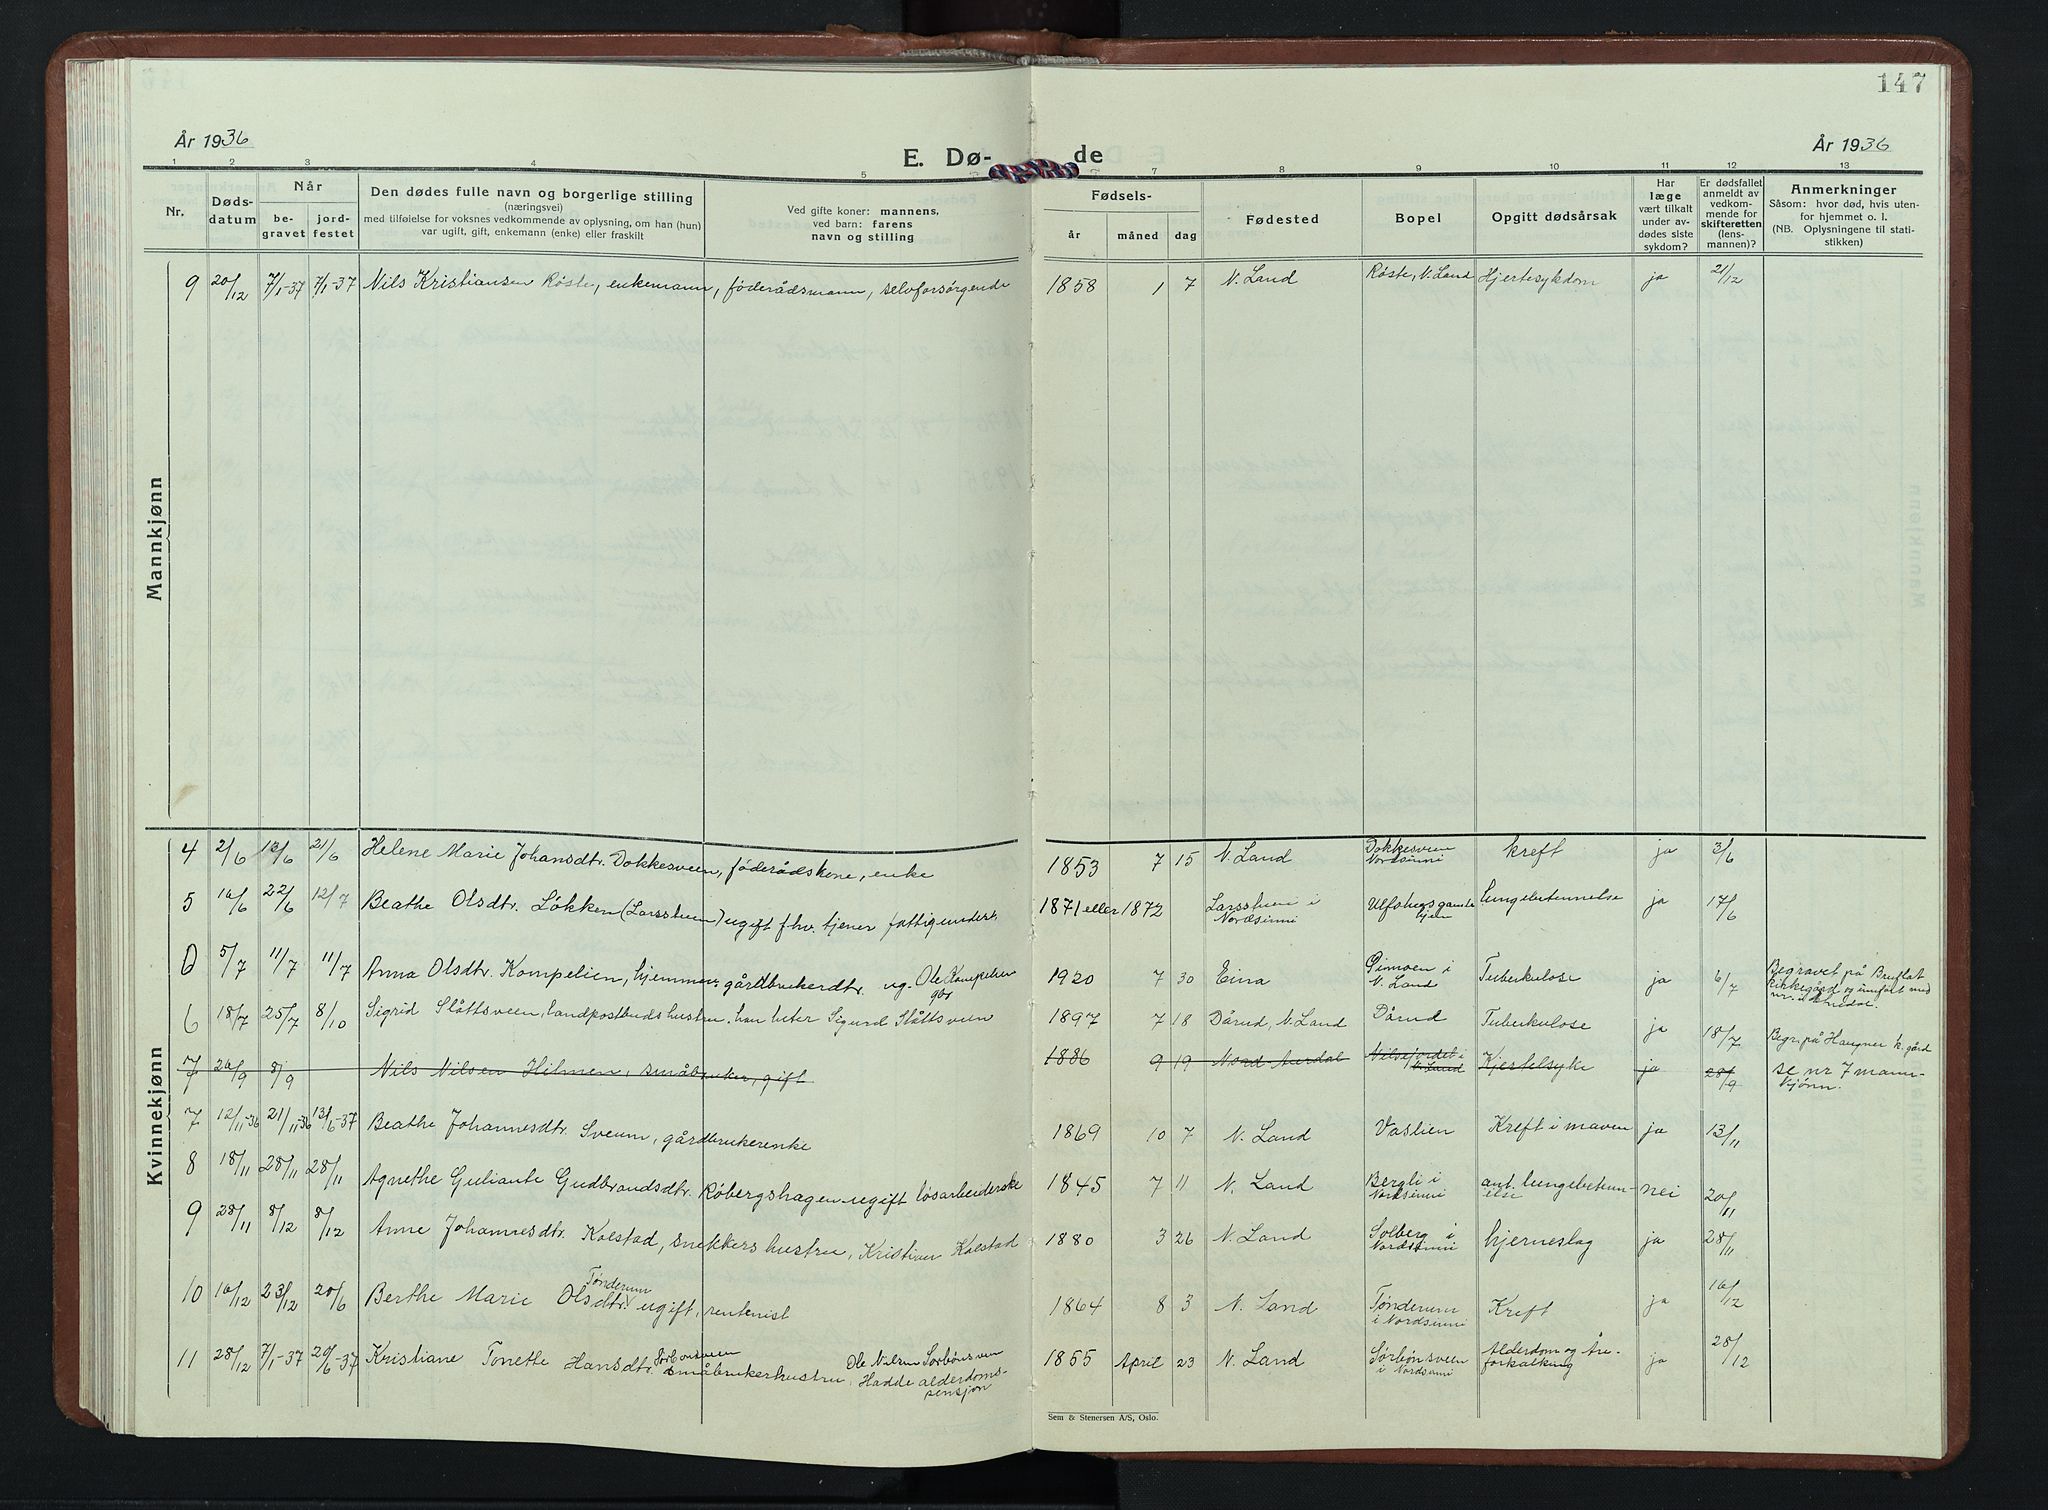 147
År 1936
E. Dø-
de
År 1936
1 2 3 4 5 7 8 9 10 11 12 13
Nr.
Døds-
datum
Når
be-
gravet
jord-
festet
Den dødes fulle navn og borgerlige stilling
(næringsvei)
med tilføielse for voksnes vedkommende av oplysning, om han (hun)
var ugift, gift, enkemann (enke) eller fraskilt
Ved gifte koner: mannens,
ved barn: farens
navn og stilling
Fødsels-
år
måned
dag
Fødested
Bopel
Opgitt dødsårsak
Har
læge
vært tilkalt
under av-
dødes siste
sykdom?
Er dødsfallet
anmeldt av
vedkom-
mende for
skifteretten
(lens-
mannen)?
Anmerkninger
Såsom: hvor død, hvis uten-
for hjemmet o. l.
(NB. Oplysningene til stati-
stikken)
Mannkjønn
9 20/12 7/1-37 7/1-37 Nils Kristiansen Røste, enkemann, føderådsmann, selvforsørgende 1858 1 7 N. Land Røste, N. Land Hjertesykdom ja 21/12
Kvinnekjønn
4 2/6 13/6 21/6 Helene Marie Johansdtr. Dokkesveen, føderådskone, enke 1853 7 15 N. Land Dokkesveen Nordsinni kreft ja 3/6
5 16/6 22/6 12/7 Beathe Olsdtr. Løkken (Larsshuen) ugift fhv. tjener fattigunderst. 1871 eller 1872 Larsshuen i Nordsinni hjem lungebetennelse ja 17/6
0 5/7 11/7 11/7 Anna Olsdtr. Kompelien, hjemmev. gårdbrukerdtr. ug. Ole Kompelien gbr 1920 7 30 Eina Gimoen i N. Land Tuberkulose ja 6/7 Begravet på Bruflat kirkegård og innført med nr. i Etnedal.
6 18/7 25/7 8/10 Sigrid Slåttsveen, landpostbudshustru. han heter Sigurd Slåttsveen 1897 7 18 Dårud, N. Land Dårud Tuberkulose ja 18/7 Begr. på Haugner k. gård
7 26/9 8/9 Nils Nilsen Hilmen, småbruker, gift 1886 9 19 Nord-Aurdal Nilsejordet i N. Land Hjertesyke ja 28/9 se nr 7 mann-
kjønn.
7 12/11-36 21/11-36 13/6-37 Beathe Johannesdtr. Sveum, gårdbrukerenke 1869 10 7 N. Land Vaslien Kreft i maven ja 13/11
8 18/11 28/11 28/11 Agnethe Guliante Gudbrandsdtr. Røbergshagen ugift løsarbeiderske 1845 7 11 N. Land Bergli i Nordsinni ant. lungebetennelse nei 20/11
9 28/11 8/12 8/12 Anne Johannesdtr. Kolstad, snekkers hustru, Kristian Kolstad 1880 3 26 N. Land Solberg i Nordsinni hjerneslag ja 28/11
10 16/12 23/12 20/6 Berthe Marie Olsdtr. Tønderum ugift, rentenist 1864 8 3 N. Land Tønderum i Nordsinni Kreft ja 16/12
11 28/12 7/1-37 20/6-37 Kristiane Tonette Hansdtr. Sørbønsveen småbrukerhustru. Ole Nilsen Sørbønsveen Hadde alderdoms-
pensjon 1855 April 23 N. Land Sørbønsveen i Nordsinni Alderdom og Åre-
forkalkning ja 28/12
Sem & Stenersen A/S, Oslo.